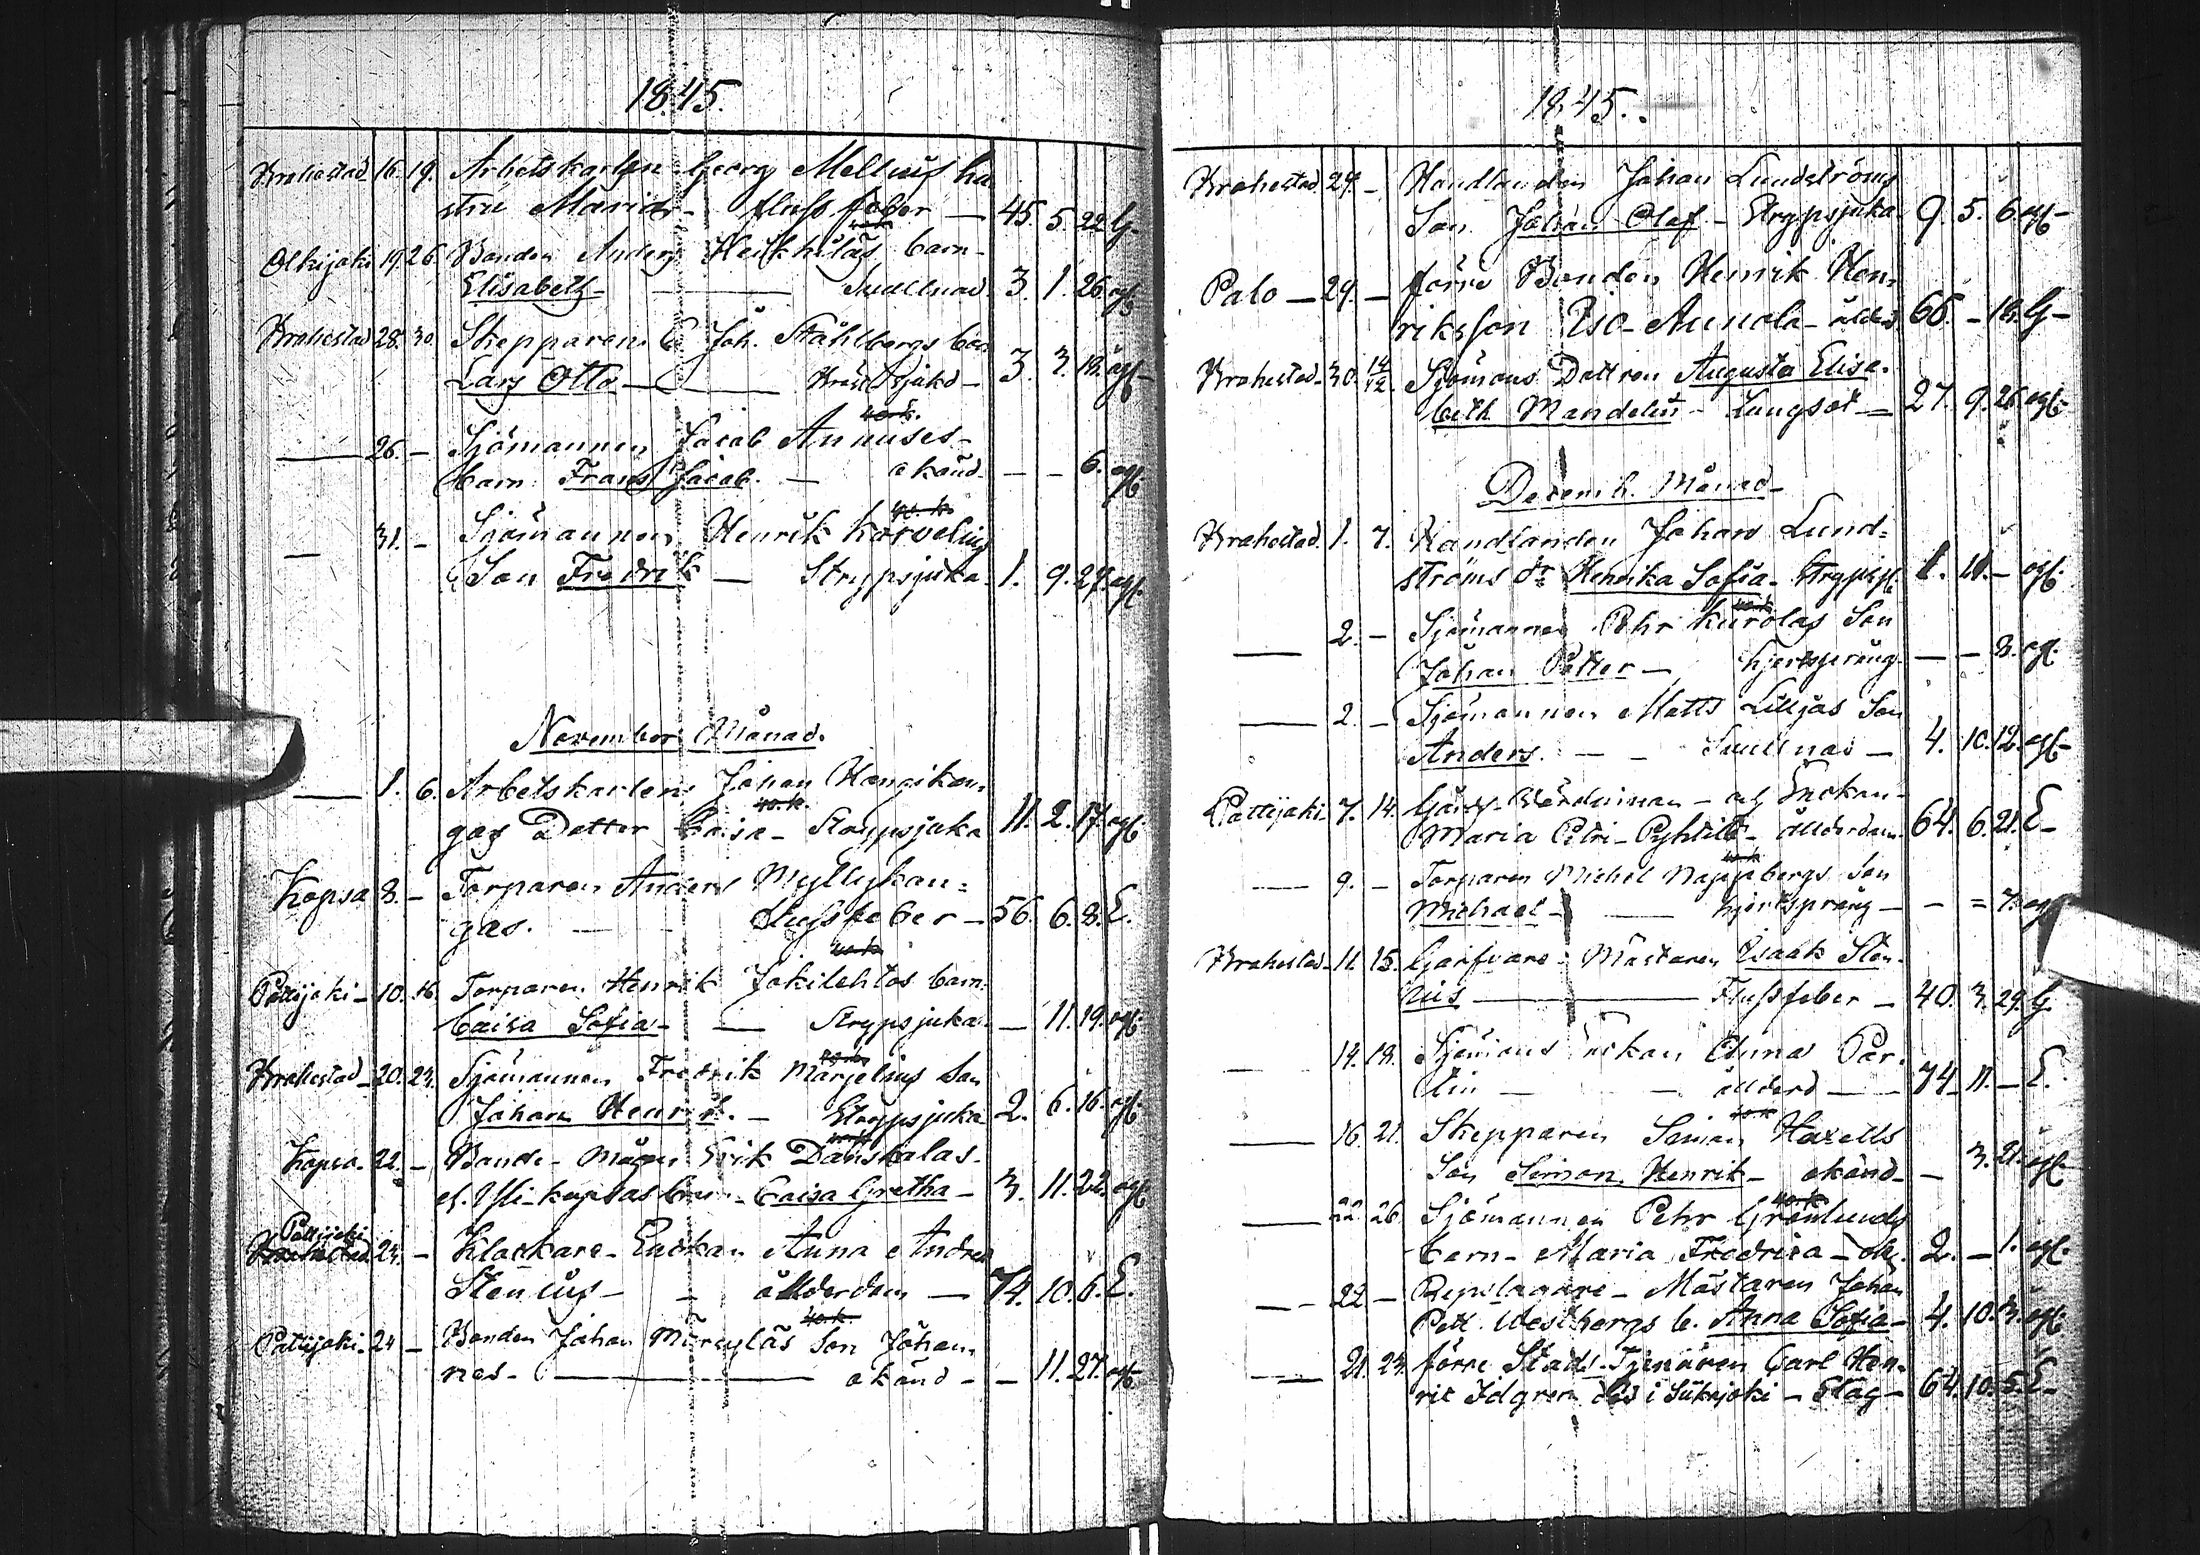 1845.
Brahestad 16. 19. Arbetskarlen Georg Mellius hu
stru Maria - flussfeber - 45. 5. 22. G.
Olkijoki 19. 26. Bonden Anders Heikkiläs barn
Elisabeth - Mullnad. 3. 1. 26. ogf.
Brahestad 28. 30. Skepparen C. Joh. Ståhlbergs barn
Lars Otto - 3. 3. 18. ogf.
— 26. - Sjömannen Jacob Annuses
barn Frans Jacob. - okänd - - - 6. ogf.
— 31. - Sjömannen Henrik Korvelius
Son Fredrik - Strypsjuka. 1. 9. 27. ogf.
November Månad.
— 1. 6. Arbetskarlen Johan Hangikan
gas Dotter Caisa - Strypsjuka 11. 2. 17. ogf.
Kopsa 8. - Torparen Anders Myllykan=
gas. - flussfeber - 56. 6. 8. E.
Pattijoki - 10. 16. Torparen Henrik Jokilehtos barn
Caisa Sofia - Strypsjuka - 11. 19. ogf.
Brahestad - 20. 23. Sjömannen Fredrik Marjelius Son
Johan Henrik. - Strypsjuka 2. 6. 16. ogf.
Kopsa. 22. - Bonde-Mågen Erik Danskalas
el. Yli-kopsas barn - Caisa Gretha - 3. 11. 22. ogf.
Pattijoki 23. - Klockare-Enckan Anna Andrea
Stenius - ålderdom - 74. 10. 6. E.
Pattijoki. 24 - Bonden Johan Mörsyläs Son Johan
nes - okänd - - 11. 27. ogf.
1845.
Brahestad 29. - Handlanden Johan Lundströms
Son Johan Olof - Strypsjuka 9. 5. 6. ogf.
Palo - 29. - förre Bonden Henrik Hen
riksson Iso-Aunola - ålderd. 66. - 16. G -
Brahestad - 30. 14/12. Sjömans Dottren Augusta Elisa-
beth Mandelin - Lungsot - 27. 9. 26. ogf.
Decemb. Månad
Brahestad. 1. 7. Handlanden Johan Lund=
ströms dr Henrika Sofia - Strypsj. 1. 11. - ogf.
— 2. - Sjömannen Pehr Kurolas Son
Johan Petter - hjertspräng - - - 3. ogf.
— 2. - Sjömannen Matts Liljas Son
Anders. - - 4. 10. 12. ogf.
Pattijoki. 7. 14. Enckan
Maria Petri - Pyhtilä - ålderdom. 64. 6. 21. E -
— 9. - Torparen Michel Nappabergs Son
Michael - hjertspräng - - = 7. ogf.
Brahestad - 11. 15. Garfvare-Mästaren Isaak Sten
nius - Flussfeber - 40. 3. 29. G.
— 14. 18. Sjömans Enckan Anna Par
lin - ålderd - 74. 11. - E.
— 16. 21. Skepparen Simon Haxells
Son Simon Henrik - okänd - 3. 21. ogf.
— 22. 26. Sjömannen Pehr Grönlunds
barn - Maria Fredrica - ok. 2. - 1. ogf.
— - 22 - Repslagare-Mästaren Johan
Pett. Westbergs b. Anna Sofia - 4. 10. 3. ogf.
— 21. 23. förre Stads-Tjenaren Carl Hen
ric Idgren död i Siikajoki - Slag - 64. 10. 5. E -